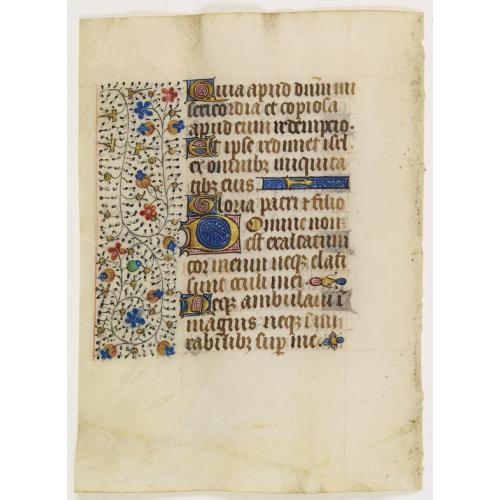 Quia apud dnm mi
sericordia et copiosa
apud eum redemptio.
Et ipse redimet isrl
ex omnibz iniquita
tibz eius.
Gloria patri et filio
Domine non
est exaltatum
cor meum neqz elati
sunt oculi mei
Neqz ambulavi i
magnis neqz i mi
rabilibz sup me.